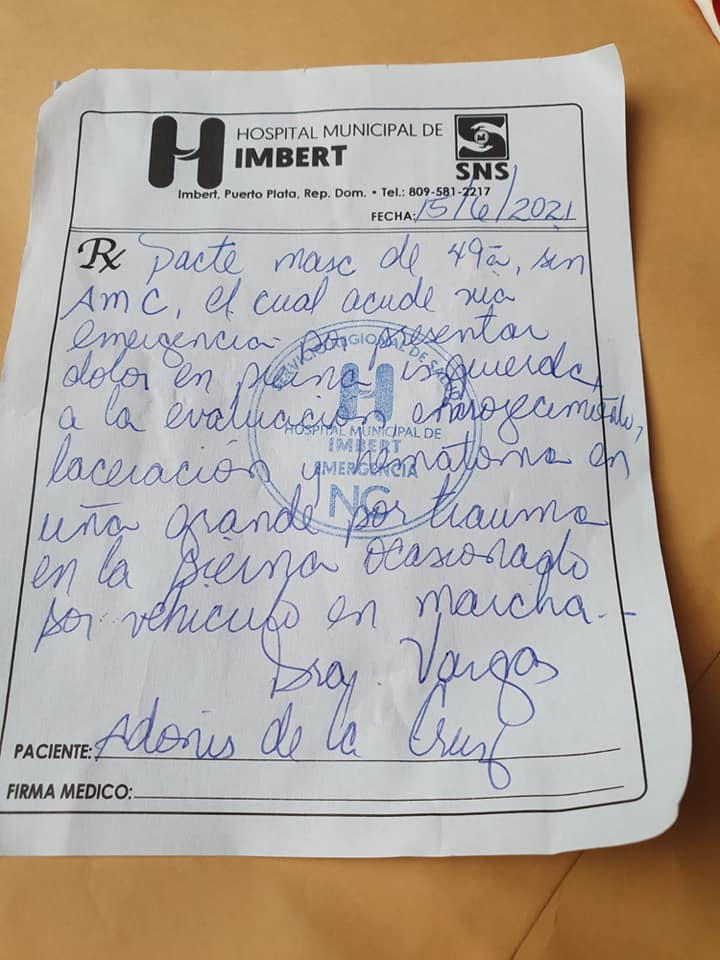 HOSPITAL MUNICIPAL DE
IMBERT
SNS
Imbert, Puerto Plata, Rep. Dom. • Tel.: 809-581-2217
FECHA: 15/6/2021
Rx Pacte masc de 49a, sin
AMC, el cual acude via
emergencia por presentar
dolor en pierna izquierda,
a la evaluación enrojecimiento,
laceración y hematoma en
uña grande por trauma
en la pierna ocasionado
por vehiculo en marcha.-
Dra. Vargas
SERVICIO REGIONAL DE SALUD
HOSPITAL MUNICIPAL DE
IMBERT
EMERGENCIA
NG
PACIENTE: Adonis de la Cruz
FIRMA MEDICO: